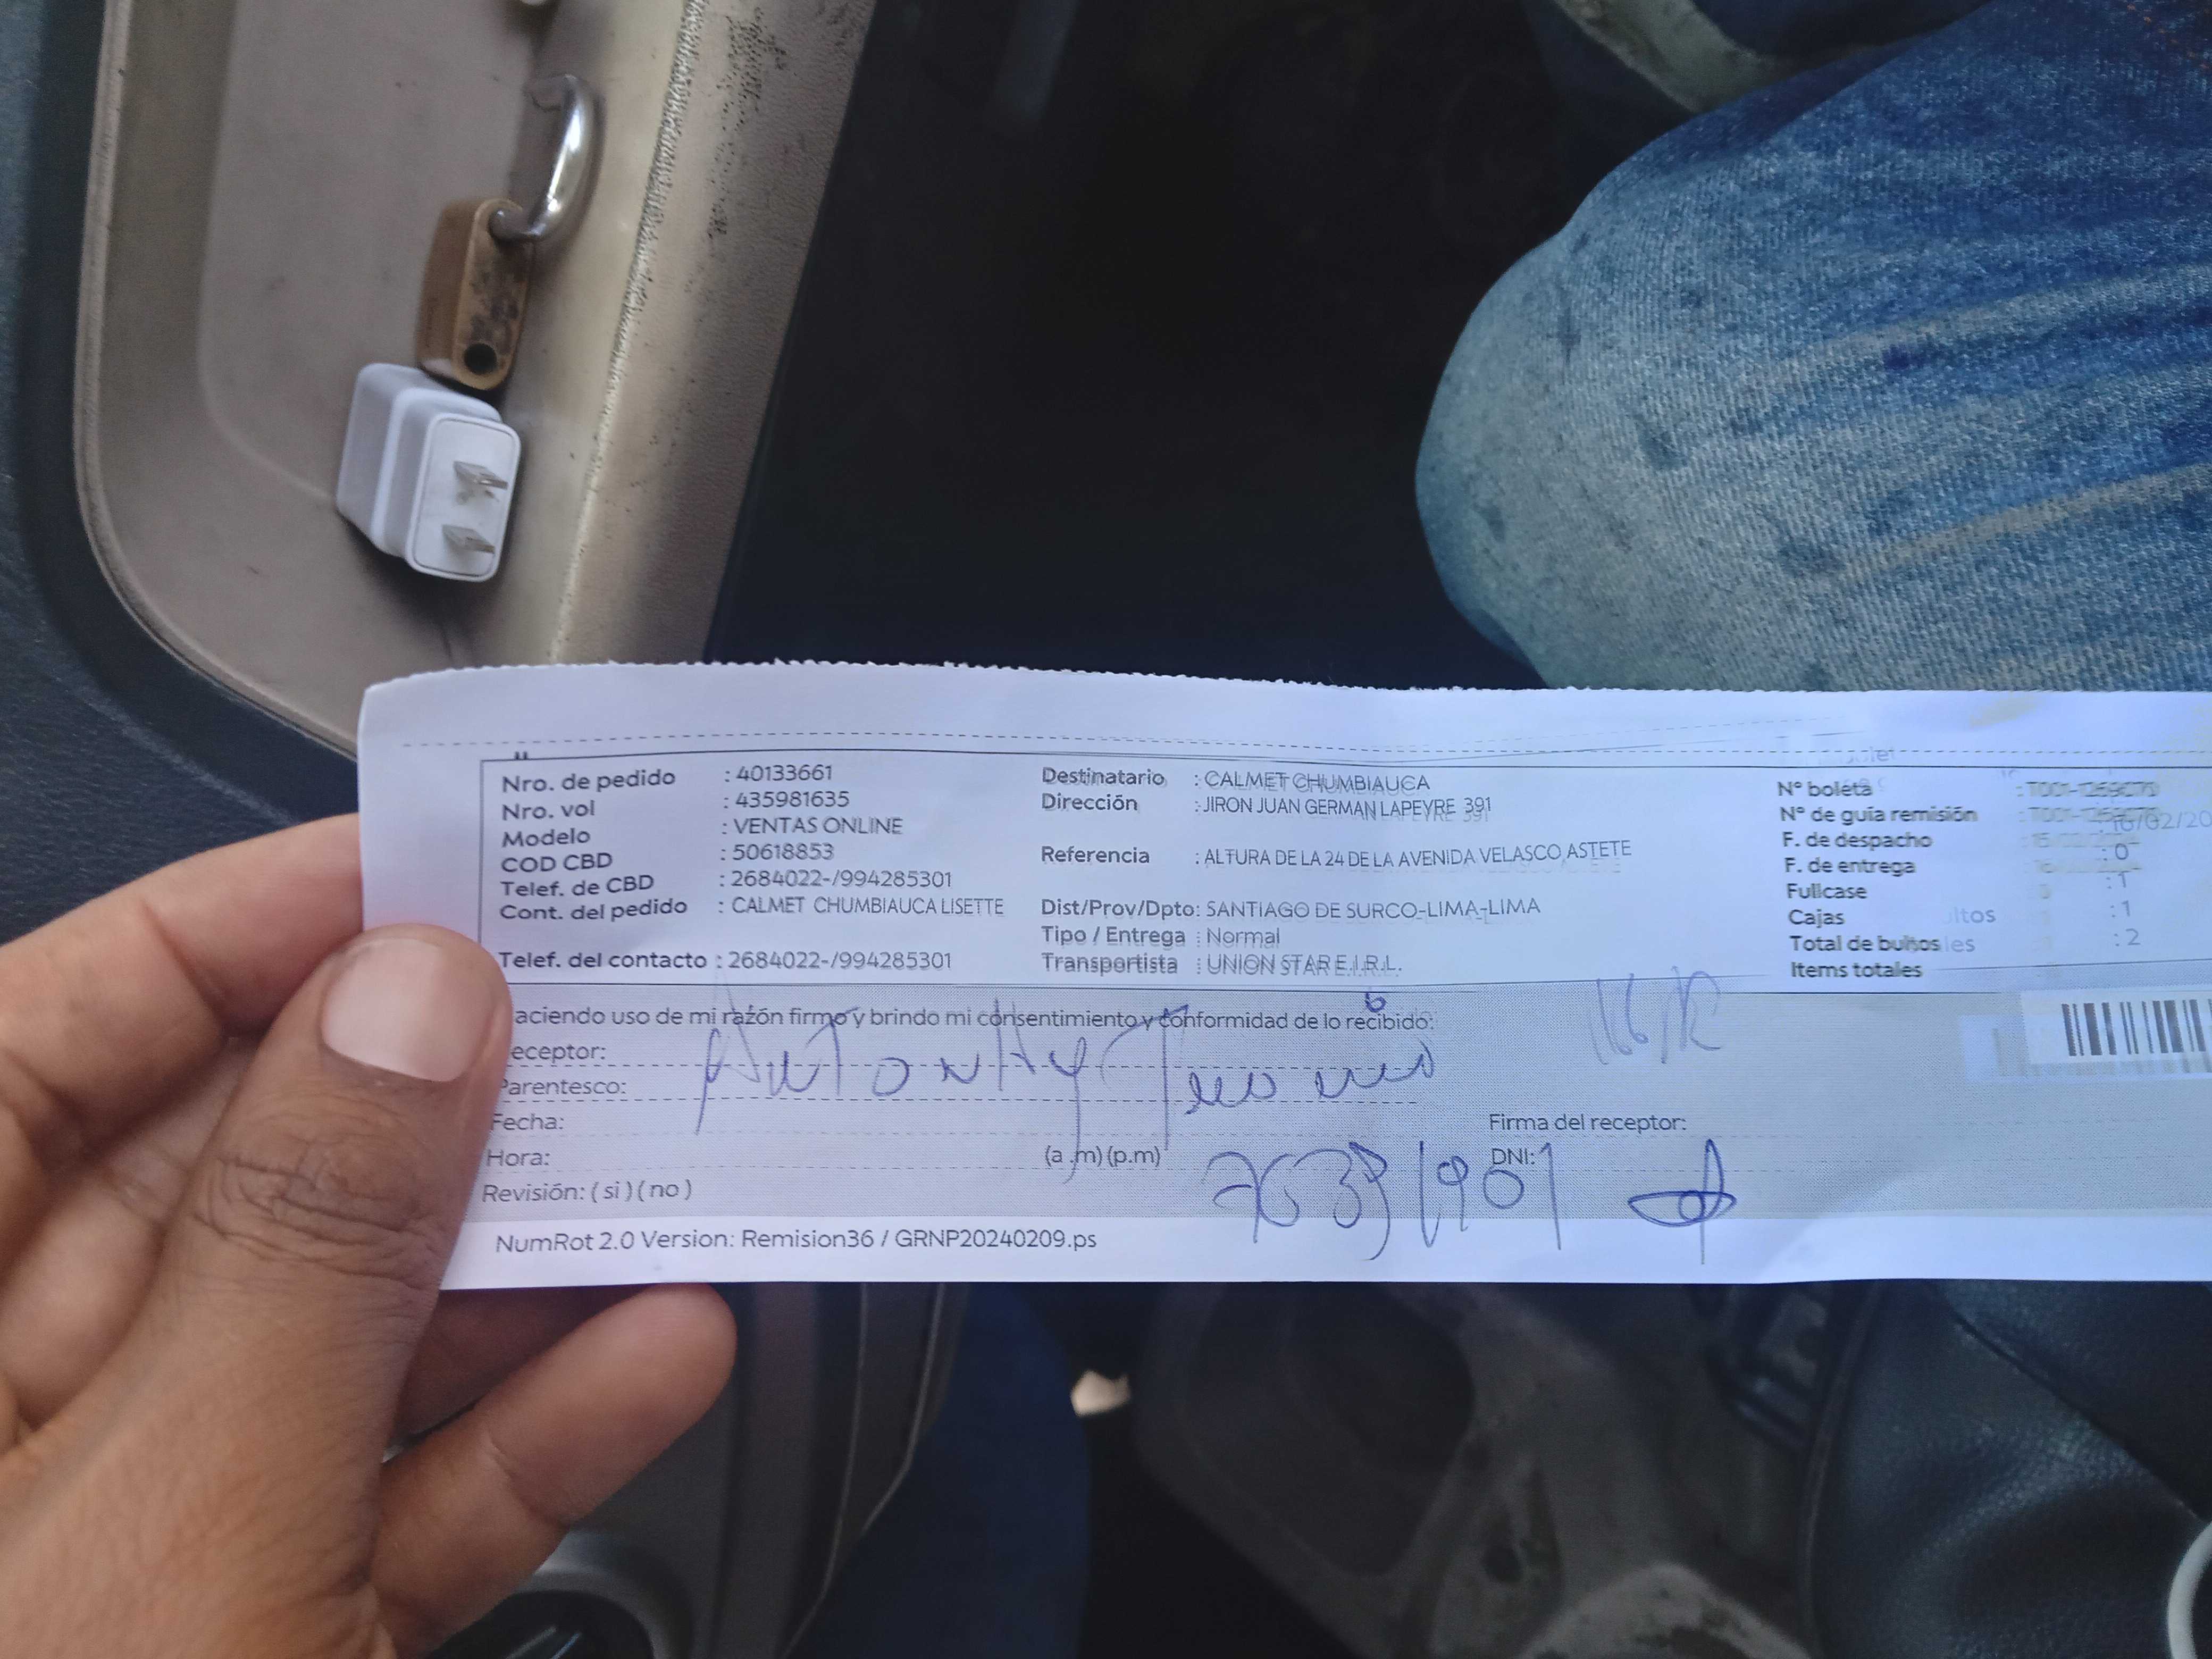 Nro. de pedido : 40133661
Nro. vol : 435981635
Modelo : VENTAS ONLINE
COD CBD : 50618853
Telef. de CBD : 2684022-/994285301
Cont. del pedido : CALMET CHUMBIAUCA LISETTE
Telef. del contacto : 2684022-/994285301
Destinatario : CALMET CHUMBIAUCA
Dirección : JIRON JUAN GERMAN LAPEYRE 391
Referencia : ALTURA DE LA 24 DE LA AVENIDA VELASCO ASTETE
Dist/Prov/Dpto: SANTIAGO DE SURCO-LIMA-LIMA
Tipo / Entrega : Normal
Transportista : UNION STAR E.I.R.L.
N° boleta
N° de guía remisión
F. de despacho
F. de entrega : 0
Fullcase : 1
Cajas : 1
Total de bultos : 2
Items totales
aciendo uso de mi razón firmo y brindo mi consentimiento y conformidad de lo recibido:
eceptor:
Parentesco:
Fecha:
Hora: (a .m) (p.m)
Revisión: ( si ) ( no )
Firma del receptor:
DNI:
NumRot 2.0 Version: Remision36 / GRNP20240209.ps